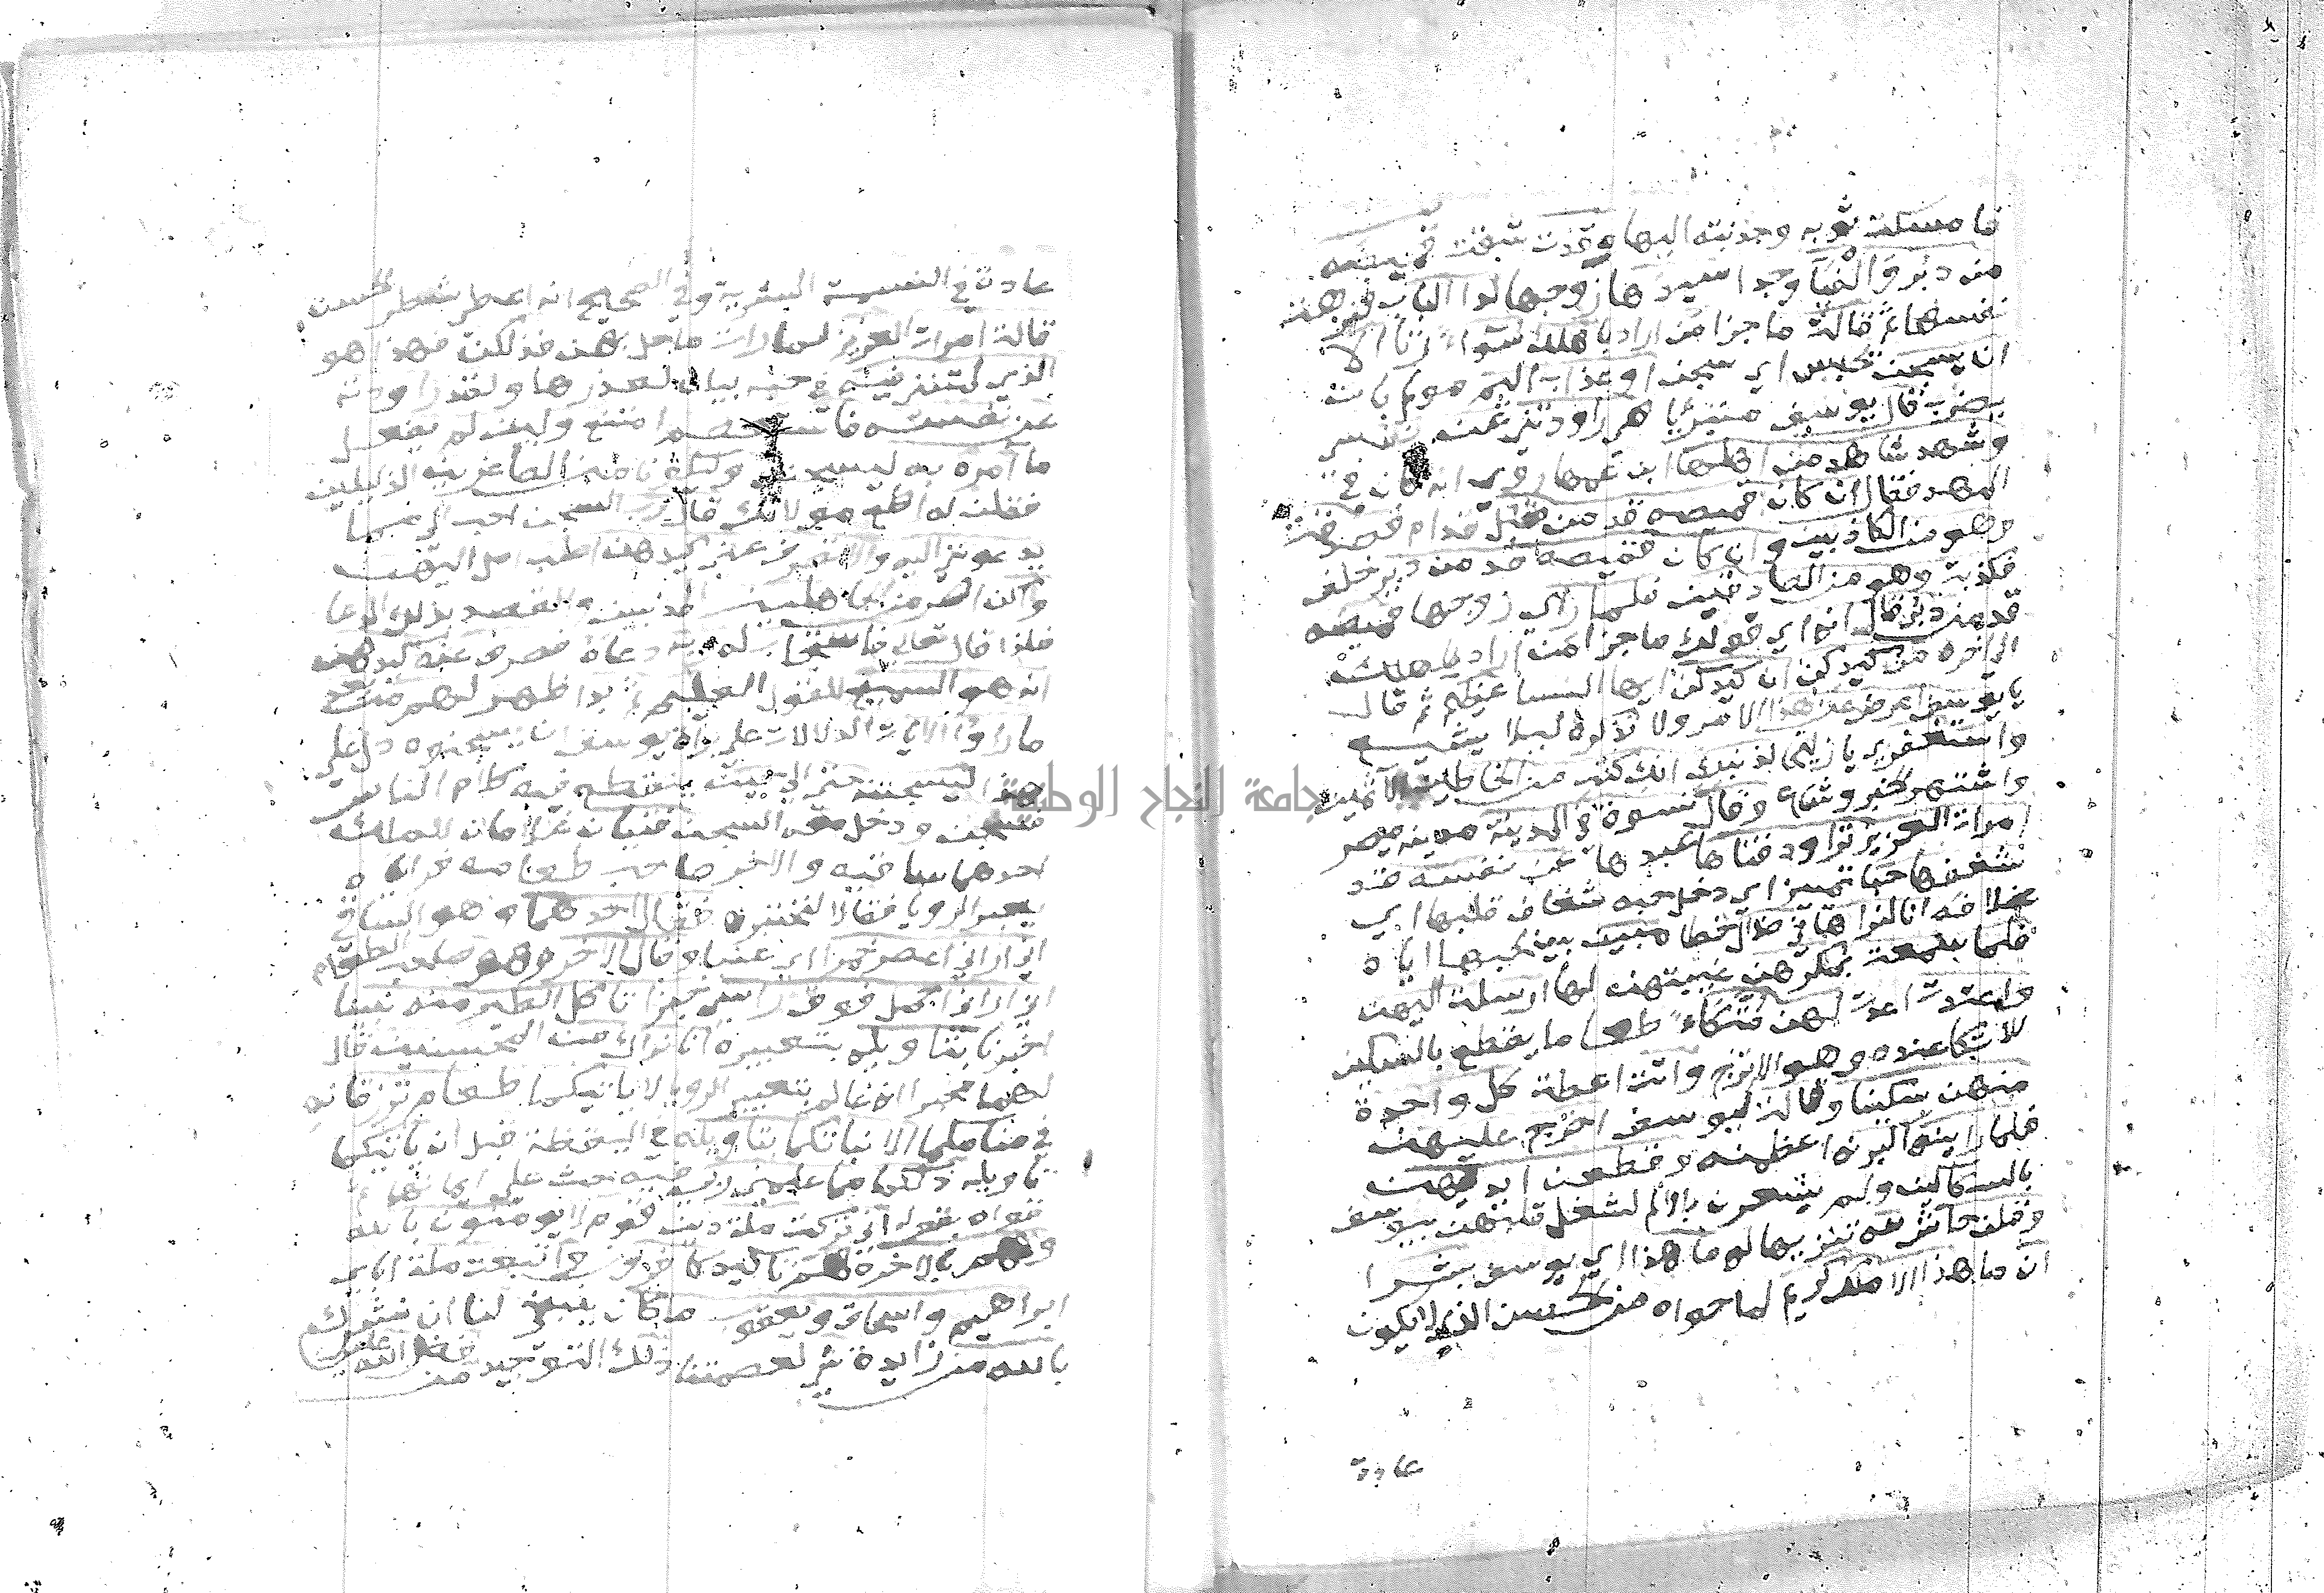 فامسكت ثوبه وجذبته اليها وقدت شقت قميصه
من دبر والفيا وجدا سيدها زوجها لدا الباب فنزهت
نفسها ثم قالت ما جزا من اراد باهلك سوءا زنا الا
ان يسجن يحبس اي سجن او عذاب اليم مولم بان
يضرب قال يوسف متبريا هي راودتني عن نفسي
وشهد شاهد من اهلها ابن عمها روي انه كان في
المهد فقال ان كان قميصه قد من قبل قدام فصدقت
وهو من الكاذبين وان كان قميصه قد من دبر خلف
فكذبت وهو من الصادقين فلما راي زوجها قميصه
قد من دبر قال انه اي قولك ما جزا من اراد باهلك
الي اخره من كيدكن ان كيدكن ايها النسا عظيم ثم قال
يا يوسف اعرض عن هذا الامر ولا تذكره ليلا يشيع
واستغفري يا زليخا لذنبك انك كنت من الخاطين الاثمين
واشتهر الخبر وشاع وقال نسوة في المدينة مدينة مصر
امرات العزيز تراود فتاها عبدها عن نفسه قد
شغفها حبا تمييز اي دخل حبه شغاف قلبها اي
غلافه انا لنراها في ضلال خطا مبين بين بحبها اياه
فلما سمعت بمكرهن غيبتهن لها ارسلت اليهن
واعتدت اعدت لهن متكاء طعاما يقطع بالسكين
للاتكا عنده وهو الاترج واتت اعطت كل واحدة
منهن سكينا وقالت ليوسف اخرج عليهن
فلما راينه اكبرنه اعظمنه وقطعن ايديهن
بالسكاكين ولم يشعرن بالالم لشغل قلبهن بيوسف
وقلن حاش لله تنزيها له ما هذا اي يوسف بشرا
ان ما هذا الا ملك كريم لما حواه من الحسن الذي لا يكون
عادة
عادة في النسمة البشرية وفي الصحيح انه اعطي شطر الحسن
قالت امرات العزيز لما رات ما حل بهن فذلكن فهذا هو
الذي لمتنني فيه في حبه بيان لعذرها ولقد راودته
عن نفسه فاستعصم امتنع ولين لم يفعل
ما آمره به ليسجنن وليكونا من الصاغرين الذليلين
فقلن له اطع مولاتك قال رب السجن احب الي مما
يدعونني اليه والا تصرف عني كيدهن اصب امل اليهن
واكن اصر من الجاهلين المذنبين والقصد بذلك الدعا
فلذا قال تعالي فاستجاب له ربه دعاه فصرف عنه كيدهن
انه هو السميع للقول العليم ثم بدا ظهر لهم من بعد
ما راوا الايات الدلالات علي براة يوسف ان يسجنوه دل علي
هذا ليسجننه حتي الي حين ينقطع فيه كلام الناس
فسجن ودخل معه السجن فتيان غلامان للملك
احدهما ساقيه والاخر صاحب طعامه فراياه
يعبر الرويا فقالا لنختبرنه قال احدهما وهو الساقي
اني اراني اعصر خمرا اي عنبا وقال الاخر وهو صاحب الطعام
اني اراني احمل فوق راسي خبزا تاكل الطير منه نبينا
اخبرنا بتاويله بتعبيره انا نراك من المحسنين قال
لهما مخبرا انه عالم بتعبير الرويا لا ياتيكما طعام ترزقانه
في منامكما الا نباتكما بتاويله في اليقظة قبل ان ياتيكما
تاويله ذلكما مما علمني ربي فيه حث علي ايمانهما ثم
قواه بقوله اني تركت ملة دين قوم لا يومنون بالله
وهم بالاخرة هم تاكيد كافرون واتبعت ملة اباي
ابراهيم واسحاق ويعقوب ما كان ينبغي لنا ان نشرك
بالله من زايدة شي لعصمتنا ذلك التوحيد من فضل الله علينا
جامعة النجاح الوطنية